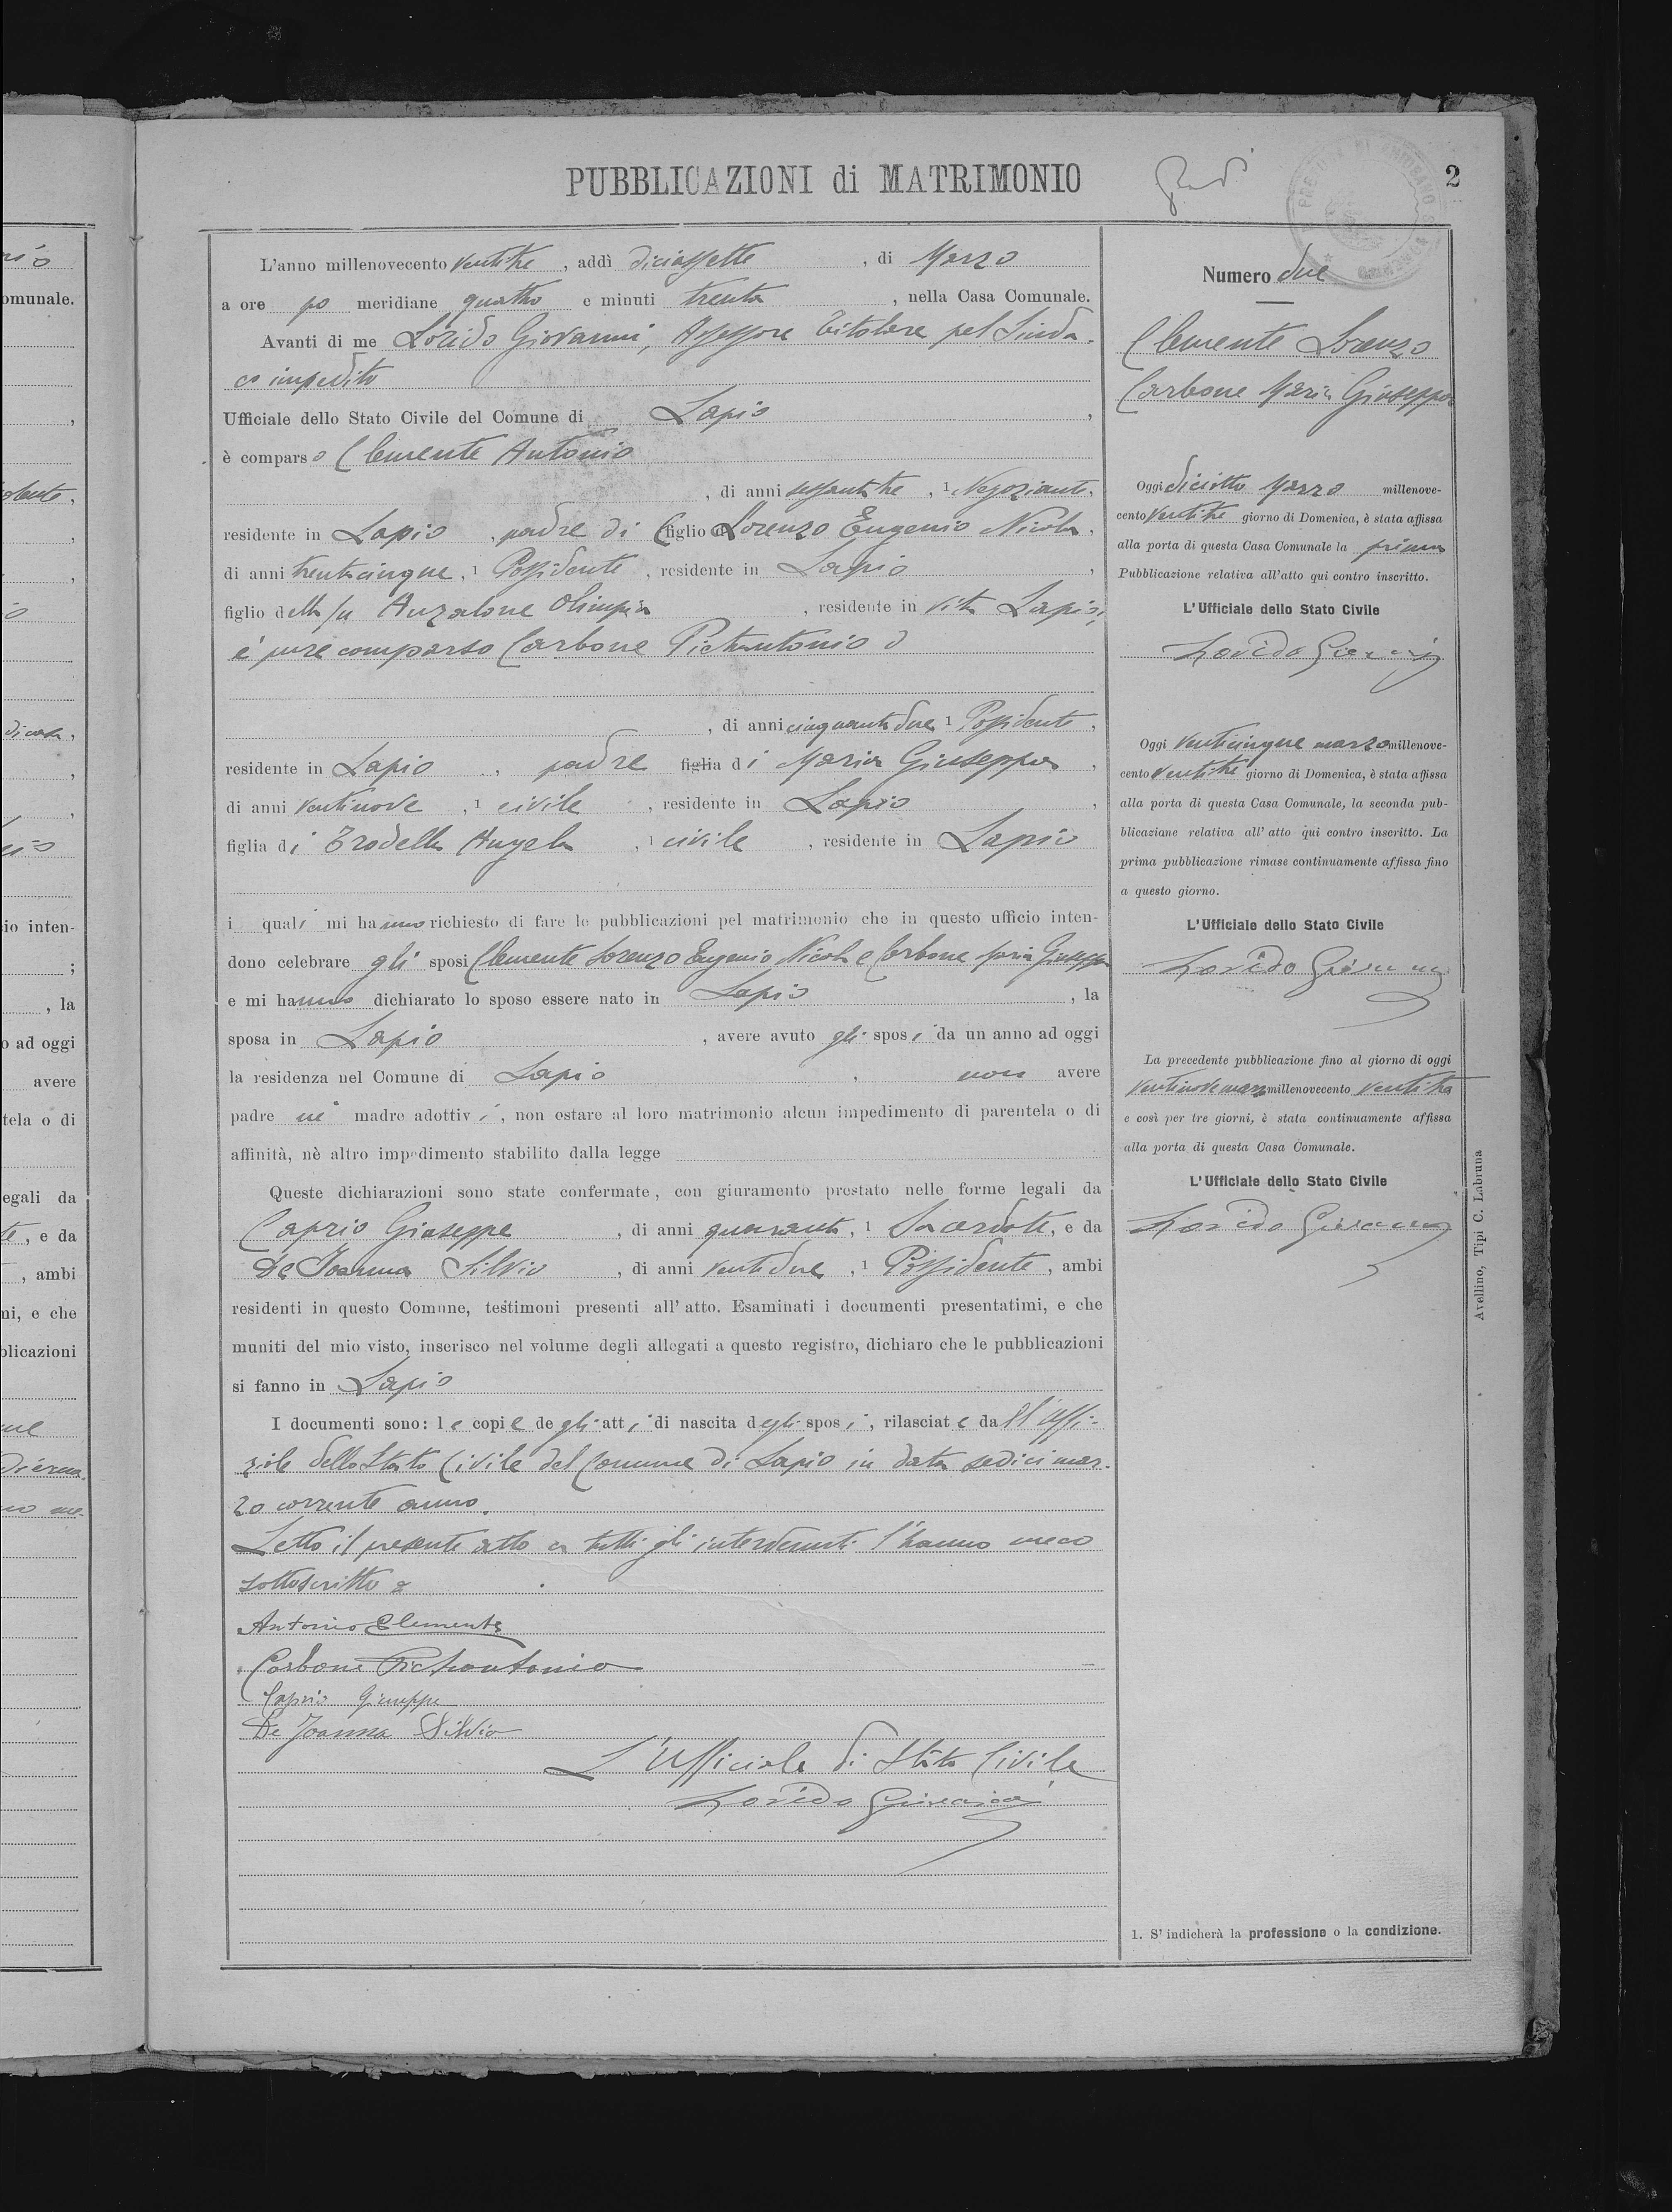 PUBBLICAZIONI di MATRIMONIO
2
L'anno millenovecento ventitre, addì diciassette, di Marzo
a ore po meridiane quattro e minuti trenta, nella Casa Comunale.
Avanti di me Lorido Giovanni, Assessore titolare pel Sinda-
co impedito
Ufficiale dello Stato Civile del Comune di Lapio,
è comparso Clemente Antonio
, di anni sessantatre, 1 Negoziante,
residente in Lapio, padre di figlio di Lorenzo Eugenio Nicola,
di anni trentacinque, 1 Possidente, residente in Lapio,
figlio della fu Anzalone Olimpia, residente in vita Lapio,
è pure comparso Carbone Pietrantonio
, di anni cinquantadue 1 Possidente,
residente in Lapio, padre figlia di Maria Giuseppa,
di anni ventinove, 1 civile, residente in Lapio,
figlia di Trodella Angela, 1 civile, residente in Lapio
i quali mi hanno richiesto di fare le pubblicazioni pel matrimonio che in questo ufficio inten-
dono celebrare gli sposi Clemente Lorenzo Eugenio Nicola e Carbone Maria Giuseppa
e mi hanno dichiarato lo sposo essere nato in Lapio, la
sposa in Lapio, avere avuto gli sposi da un anno ad oggi
la residenza nel Comune di Lapio, non avere
padre nè madre adottivi, non ostare al loro matrimonio alcun impedimento di parentela o di
affinità, nè altro impedimento stabilito dalla legge
Queste dichiarazioni sono state confermate, con giuramento prestato nelle forme legali da
Caprio Giuseppe, di anni quaranta, 1 Sacerdote, e da
De Joanna Silvio, di anni ventidue, 1 Possidente, ambi
residenti in questo Comune, testimoni presenti all'atto. Esaminati i documenti presentatimi, e che
muniti del mio visto, inserisco nel volume degli allegati a questo registro, dichiaro che le pubblicazioni
si fanno in Lapio
I documenti sono: le copie de gli atti di nascita degli sposi, rilasciate dall'Uffi-
ziale dello Stato Civile del Comune di Lapio in data sedici mar-
zo corrente anno.
Letto il presente atto a tutti gli intervenuti l'hanno meco
sottoscritto
Antonio Clemente
Carbone Pietrantonio
Caprio Giuseppe
De Joanna Silvio
L'Ufficiale di Stato Civile
Lorido Giovanni
Numero due
Clemente Lorenzo
Carbone Maria Giuseppa
Oggi diciotto Marzo millenove-
cento ventitre giorno di Domenica, è stata affissa
alla porta di questa Casa Comunale la prima
Pubblicazione relativa all'atto qui contro inscritto.
L'Ufficiale dello Stato Civile
Lorido Giovanni
Oggi venticinque marzo millenove-
cento ventitre giorno di Domenica, è stata affissa
alla porta di questa Casa Comunale, la seconda pub-
blicazione relativa all'atto qui contro inscritto. La
prima pubblicazione rimase continuamente affissa fino
a questo giorno.
L'Ufficiale dello Stato Civile
Lorido Giovanni
La precedente pubblicazione fino al giorno di oggi
ventinove marzo millenovecento ventitre
e così per tre giorni, è stata continuamente affissa
alla porta di questa Casa Comunale.
L'Ufficiale dello Stato Civile
Lorido Giovanni
1. S'indicherà la professione o la condizione.
Avellino, Tipi C. Labruna
omunale.
io inten-
;
, la
o ad oggi
avere
tela o di
egali da
, e da
, ambi
ni, e che
blicazioni